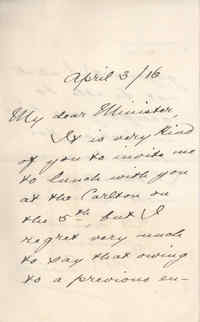 April 3/16
My dear Minister,
It is very kind
of you to invite me
to lunch with you
at the Carlton on
the 5th, but I
regret very much
to say that owing
to a previous en-